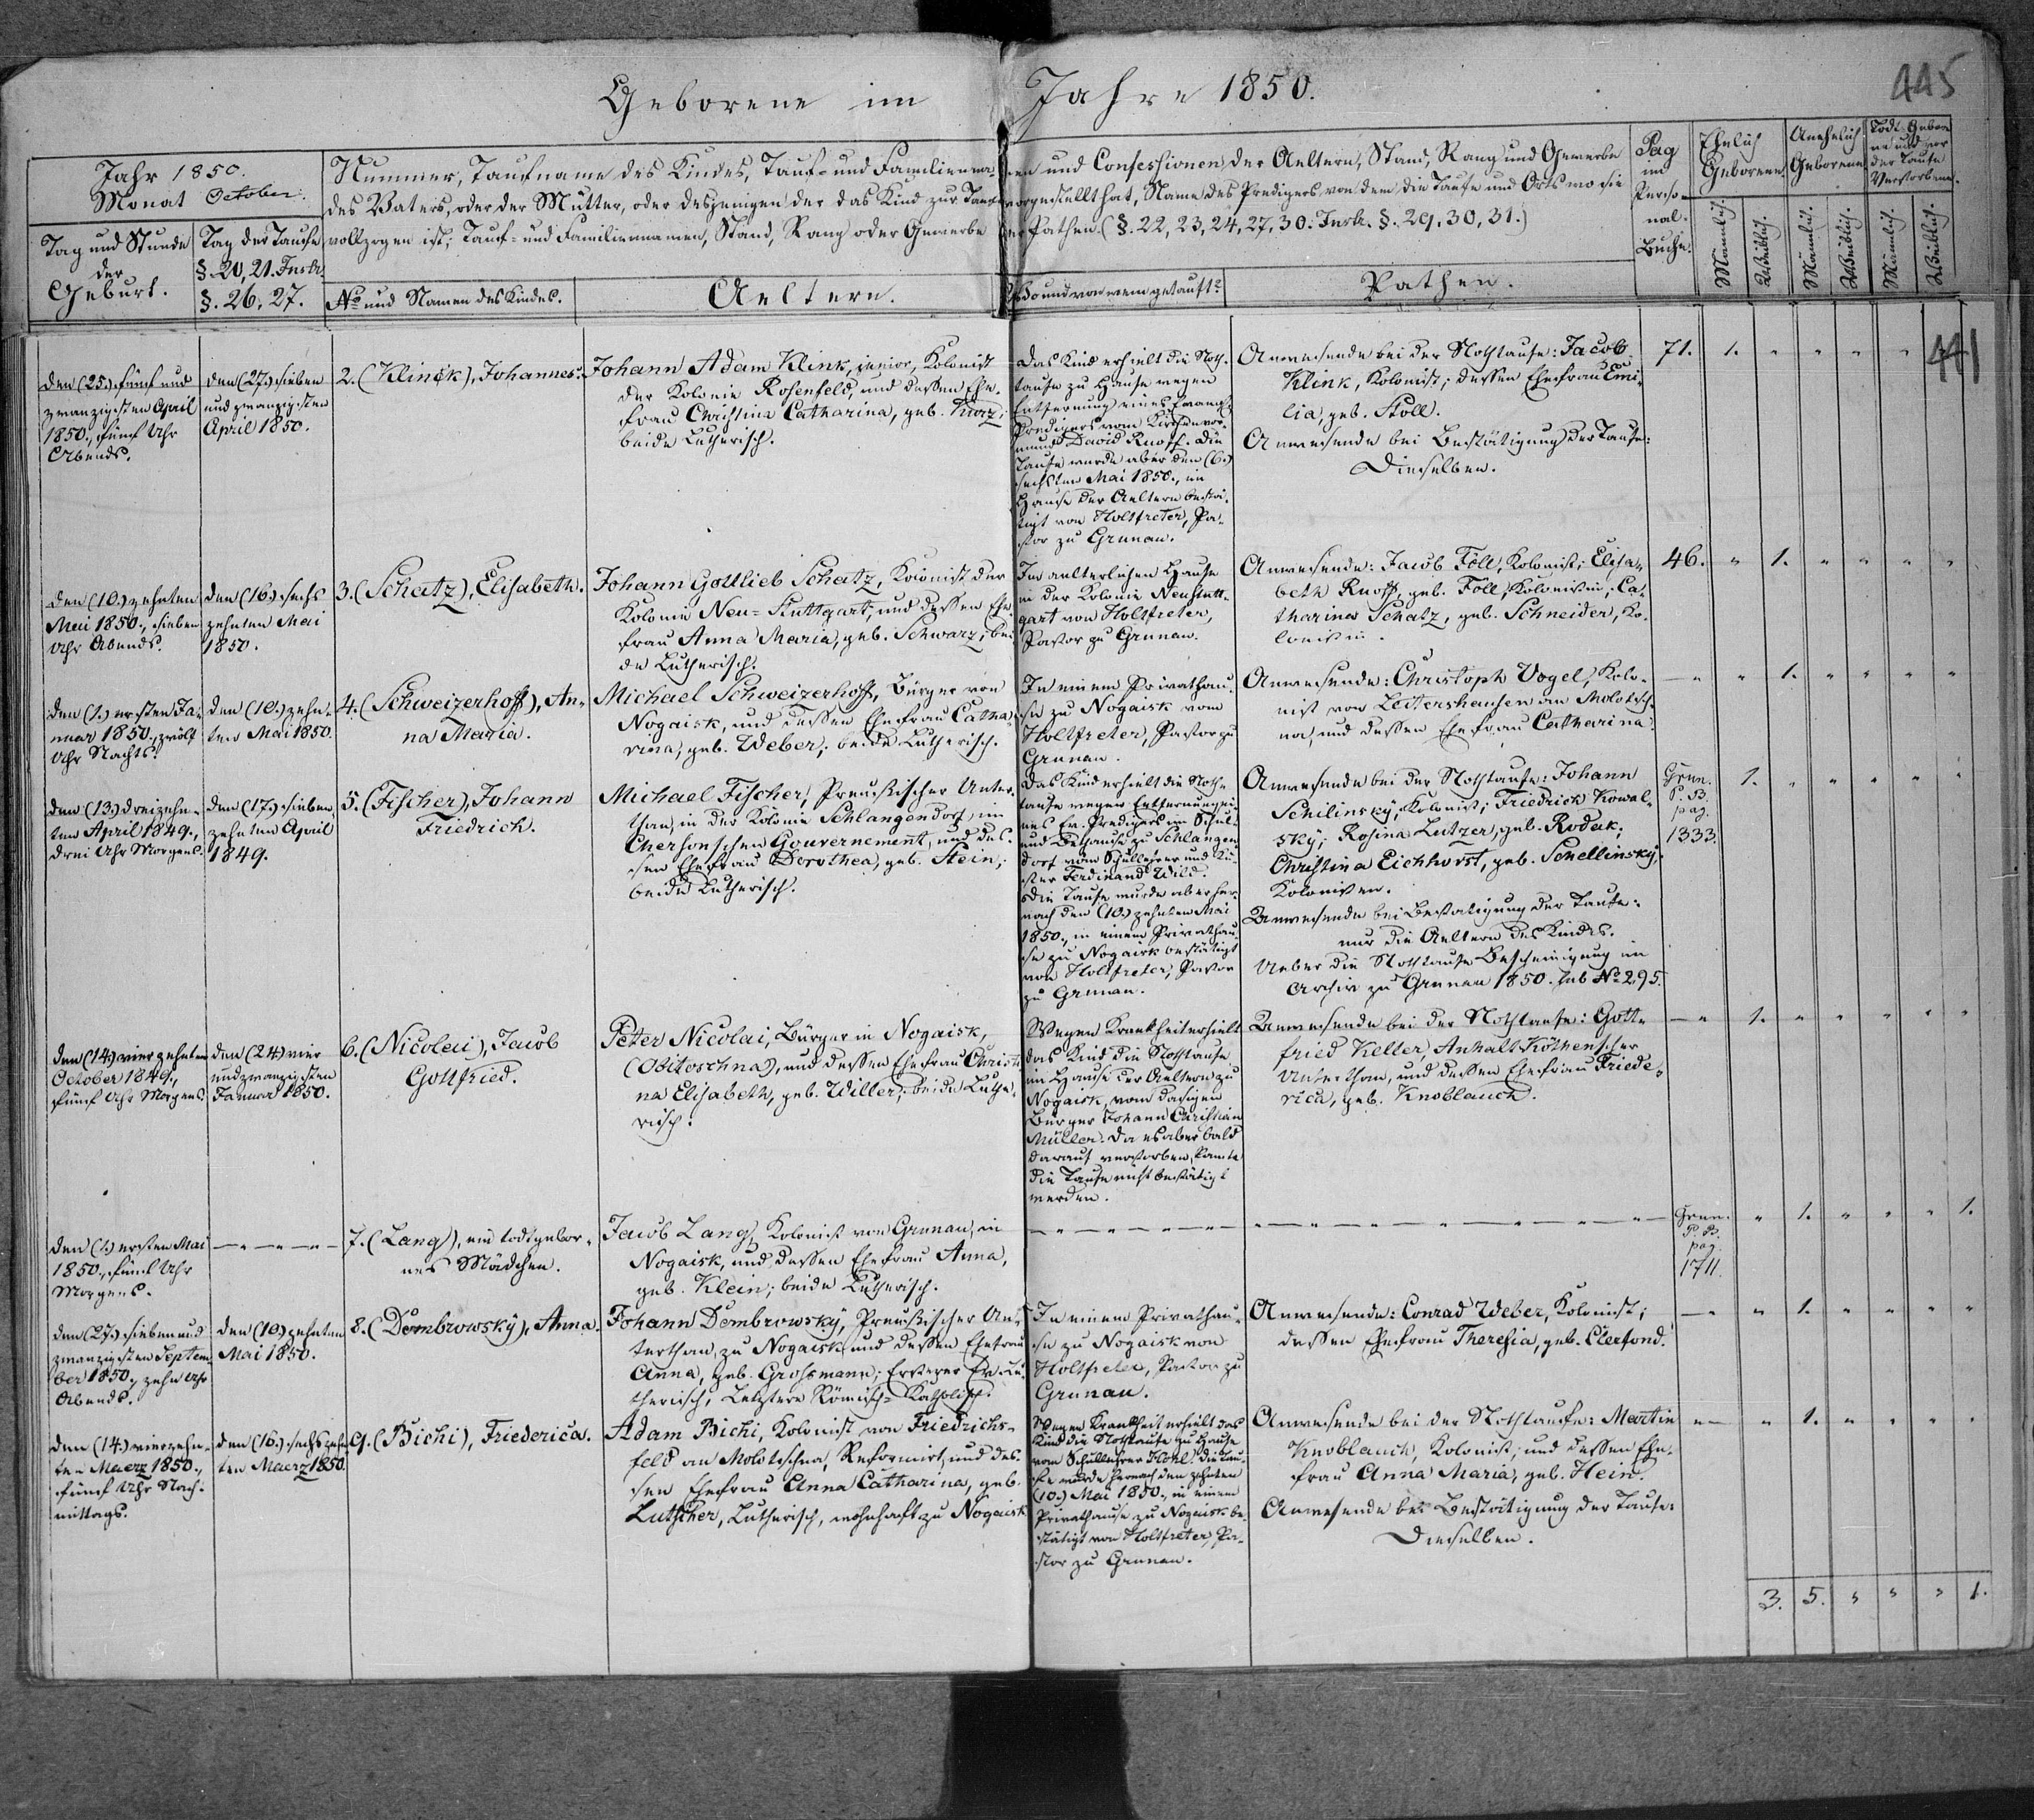 Geborene im Jahre 1850.
445
Jahr 1850.
Monat October.
Tag und Stunde
der
Geburt.
Tag der Taufe
§. 20, 21. Instr.
§. 26, 27.
Nummer, Taufname des Kindes, Tauf- und Familienna-men und Confessionen der Aeltern, Stand, Rang und Gewerbe
des Vaters, oder der Mutter, oder desjenigen der das Kind zur Taufe vorgestellt hat, Name des Predigers von dem die Taufe und Orts wo sie
vollzogen ist; Tauf- und Familiennamen, Stand, Rang oder Gewerbe der Pathen. (§. 22, 23, 24, 27, 30. Instr. §. 29, 30, 31.)
No und Namen des Kindes.
Aeltern.
Wo und von wem getauft?
Pathen.
Pag
im
Perso-
nal-
Buche.
Ehelich
Geborene.
Unehelich
Geborene
Todt-Gebore
ne und vor
der Taufe
Verstorbene.
Männlich.
Weiblich.
Männlich.
Weiblich.
Männlich.
Weiblich.
441
den (25.) fünf und
zwanzigsten April
1850., fünf Uhr
Abends.
den (27.) sieben
und zwanzigsten
April 1850.
2. (Klinck), Johannes.
Johann Adam Klink, senior, Kolonist
der Kolonie Rosenfeld, und dessen Ehe-
frau Christina Catharina, geb. Kurz;
beide Lutherisch.
Das Kind erhielt die Noth-
taufe zu Hause wegen
Entfernung eines Evangl.
Predigers vom Kirchenvor-
mund David Ruoff. Die
Taufe wurde aber den (6.)
sechsten Mai 1850., im
Hause der Aeltern bestä-
tigt von Holtfreter, Pa-
stor zu Grunau.
Anwesende bei der Nothtaufe: Jacob
Klink, Kolonist; dessen Ehefrau Emi-
lia, geb. Stoll.
Anwesende bei Bestätigung der Taufe:
Dieselben.
71. 1. " " " "
den (10.) zehnten
Mai 1850., sieben
Uhr Abends.
den (16.) sechs
zehnten Mai
1850.
3. (Schatz), Elisabeth.
Johann Gottlieb Schatz, Kolonist der
Kolonie Neu-Stuttgart, und dessen Ehe-
frau Anna Maria, geb. Schwarz; bei-
de Lutherisch.
Im aelterlichen Hause
in der Kolonie Neustutt-
gart von Holtfreter,
Pastor zu Grunau.
Anwesende: Jacob Föll, Kolonist; Elisa-
beth Ruoff, geb. Föll, Kolonistin; Ca-
tharina Schatz, geb. Schneider, Ko-
lonistin.
46. " 1. " " " "
den (1.) ersten Ja-
nuar 1850., zwölf
Uhr Nachts.
den (10.) zehn-
ten Mai 1850.
4. (Schweizerhoff), An-
na Maria.
Michael Schweizerhoff, Bürger von
Nogaisk, und dessen Ehefrau Catha-
rina, geb. Weber; beide Lutherisch.
In einem Privathau-
se zu Nogaisk vom
Holtfreter, Pastor zu
Grunau.
Anwesende: Christoph Vogel, Kolo-
nist von Leitershausen an Molotsch-
na, und dessen Ehefrau Catharina.
— " " 1. " " " "
den (13.) dreizehn-
ten April 1849.,
drei Uhr Morgens.
den (17.) sieben
zehnten April
1849.
5. (Fischer), Johann
Friedrich.
Michael Fischer, Preußischer Unter-
than, in der Kolonie Schlangendorf, im
Chersonschen Gouvernement, und des-
sen Ehefrau Dorothea, geb. Stein;
beide Lutherisch.
Das Kind erhielt die Noth-
taufe wegen Entfernung ei-
nes Ev. Predigers im Schul-
und Bethause zu Schlangen
dorf vom Schullehrer und Kü-
ster Ferdinand Wild.
Die Taufe wurde aber her-
nach den (10.) zehnten Mai
1850., in einem Privathau-
se zu Nogaisk bestätigt
von Holtfreter, Pastor
zu Grunau.
Anwesende bei der Nothtaufe: Johann
Schilinsky, Kolonist; Friedrich Kowal-
sky; Rosina Lutzer, geb. Rodak;
Christina Eichhorst, geb. Schellinsky,
Kolonisten.
Anwesende bei Bestätigung der Taufe:
nur die Aeltern des Kindes.
Ueber die Nothtaufe Bescheinigung im
Archiv zu Grunau 1850. sub No 295.
Grun.
P. B.
pag.
1333.
1. " " " " "
den (14.) vierzehnten
October 1849.,
fünf Uhr Morgens
den (24) vier
und zwanzigsten
Januar 1850.
6. (Nicolai), Jacob
Gottfried.
Peter Nicolai, Bürger in Nogaisk,
(Obitoschna), und dessen Ehefrau Christi-
na Elisabeth, geb. Willer; beide Luthe-
risch.
Wegen Krankheit erhielt
das Kind die Nothtaufe
im Hause der Aeltern zu
Nogaisk, vom dasigen
Bürger Johann Christian
Müller. Da es aber bald
darauf verstorben, konnte
die Taufe nicht bestätigt
werden.
Anwesende bei der Nothtaufe: Gott-
fried Keller, Anhalt Köthenscher
Unterthan, und dessen Ehefrau Friede-
rica, geb. Knoblauch.
— " 1. " " " " "
den (1.) ersten Mai
1850., fünf Uhr
Morgens.
— " — " — " —
7. (Lang), ein todtgebor-
nes Mädchen.
Jacob Lang, Kolonist von Grunau, in
Nogaisk, und dessen Ehefrau Anna,
geb. Klein; beide Lutherisch.
Grun.
P. B.
pag.
1711.
" 1. " " " 1.
den (27.) sieben und
zwanzigsten Septem
ber 1850., zehn Uhr
Abends.
den (10) zehnten
Mai 1850.
8. (Dombrowsky), Anna.
Johann Dombrowsky, Preußischer Un-
terthan, zu Nogaisk und dessen Ehefrau
Anna, geb. Grossmann; Ersterer Ev. Lu-
therisch, Letztere Römisch-Katholisch.
In einem Privathau-
se zu Nogaisk von
Holtfreter, Pastor zu
Grunau.
Anwesende: Conrad Weber, Kolonist;
dessen Ehefrau Theresia, geb. Clerfond.
— " " 1. " " " "
den (14.) vierzehn-
ten Maerz 1850.,
fünf Uhr Nach-
mittags.
den (16.) sechszehn
ten Maerz 1850.
9. (Bichi), Friederica.
Adam Bichi, Kolonist von Friedrichs-
feld an Molotschna, Reformirt, und des-
sen Ehefrau Anna Catharina, geb.
Lutscher, Lutherisch, wohnhaft zu Nogaisk
Wegen Krankheit erhielt das
Kind die Nothtaufe zu Hause
vom Schullehrer Hohl. Die Tau-
fe wurde hernach den zehnten
(10.) Mai 1850., in einem
Privathause zu Nogaisk be-
stätigt von Holtfreter, Pa-
stor zu Grunau.
Anwesende bei der Nothtaufe: Martin
Knoblauch, Kolonist; und dessen Ehe-
frau Anna Maria, geb. Hein.
Anwesende bei Bestätigung der Taufe:
Dieselben.
" — " 1. " " " "
3. 5. " " " 1.